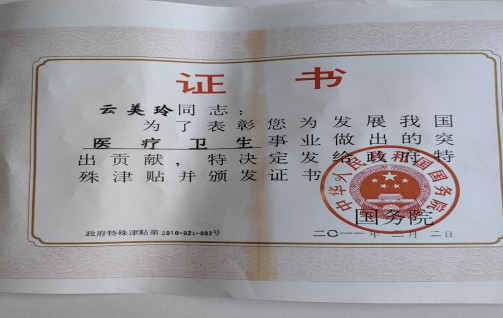 证 书
云美玲同志：
为了表彰您为发展我国
医疗卫生事业做出的突
出贡献，特决定发给政府特
殊津贴并颁发证书
中华人民共和国国务院
国务院
政府特殊津贴第2010-021-003号
二〇一一年二月二日